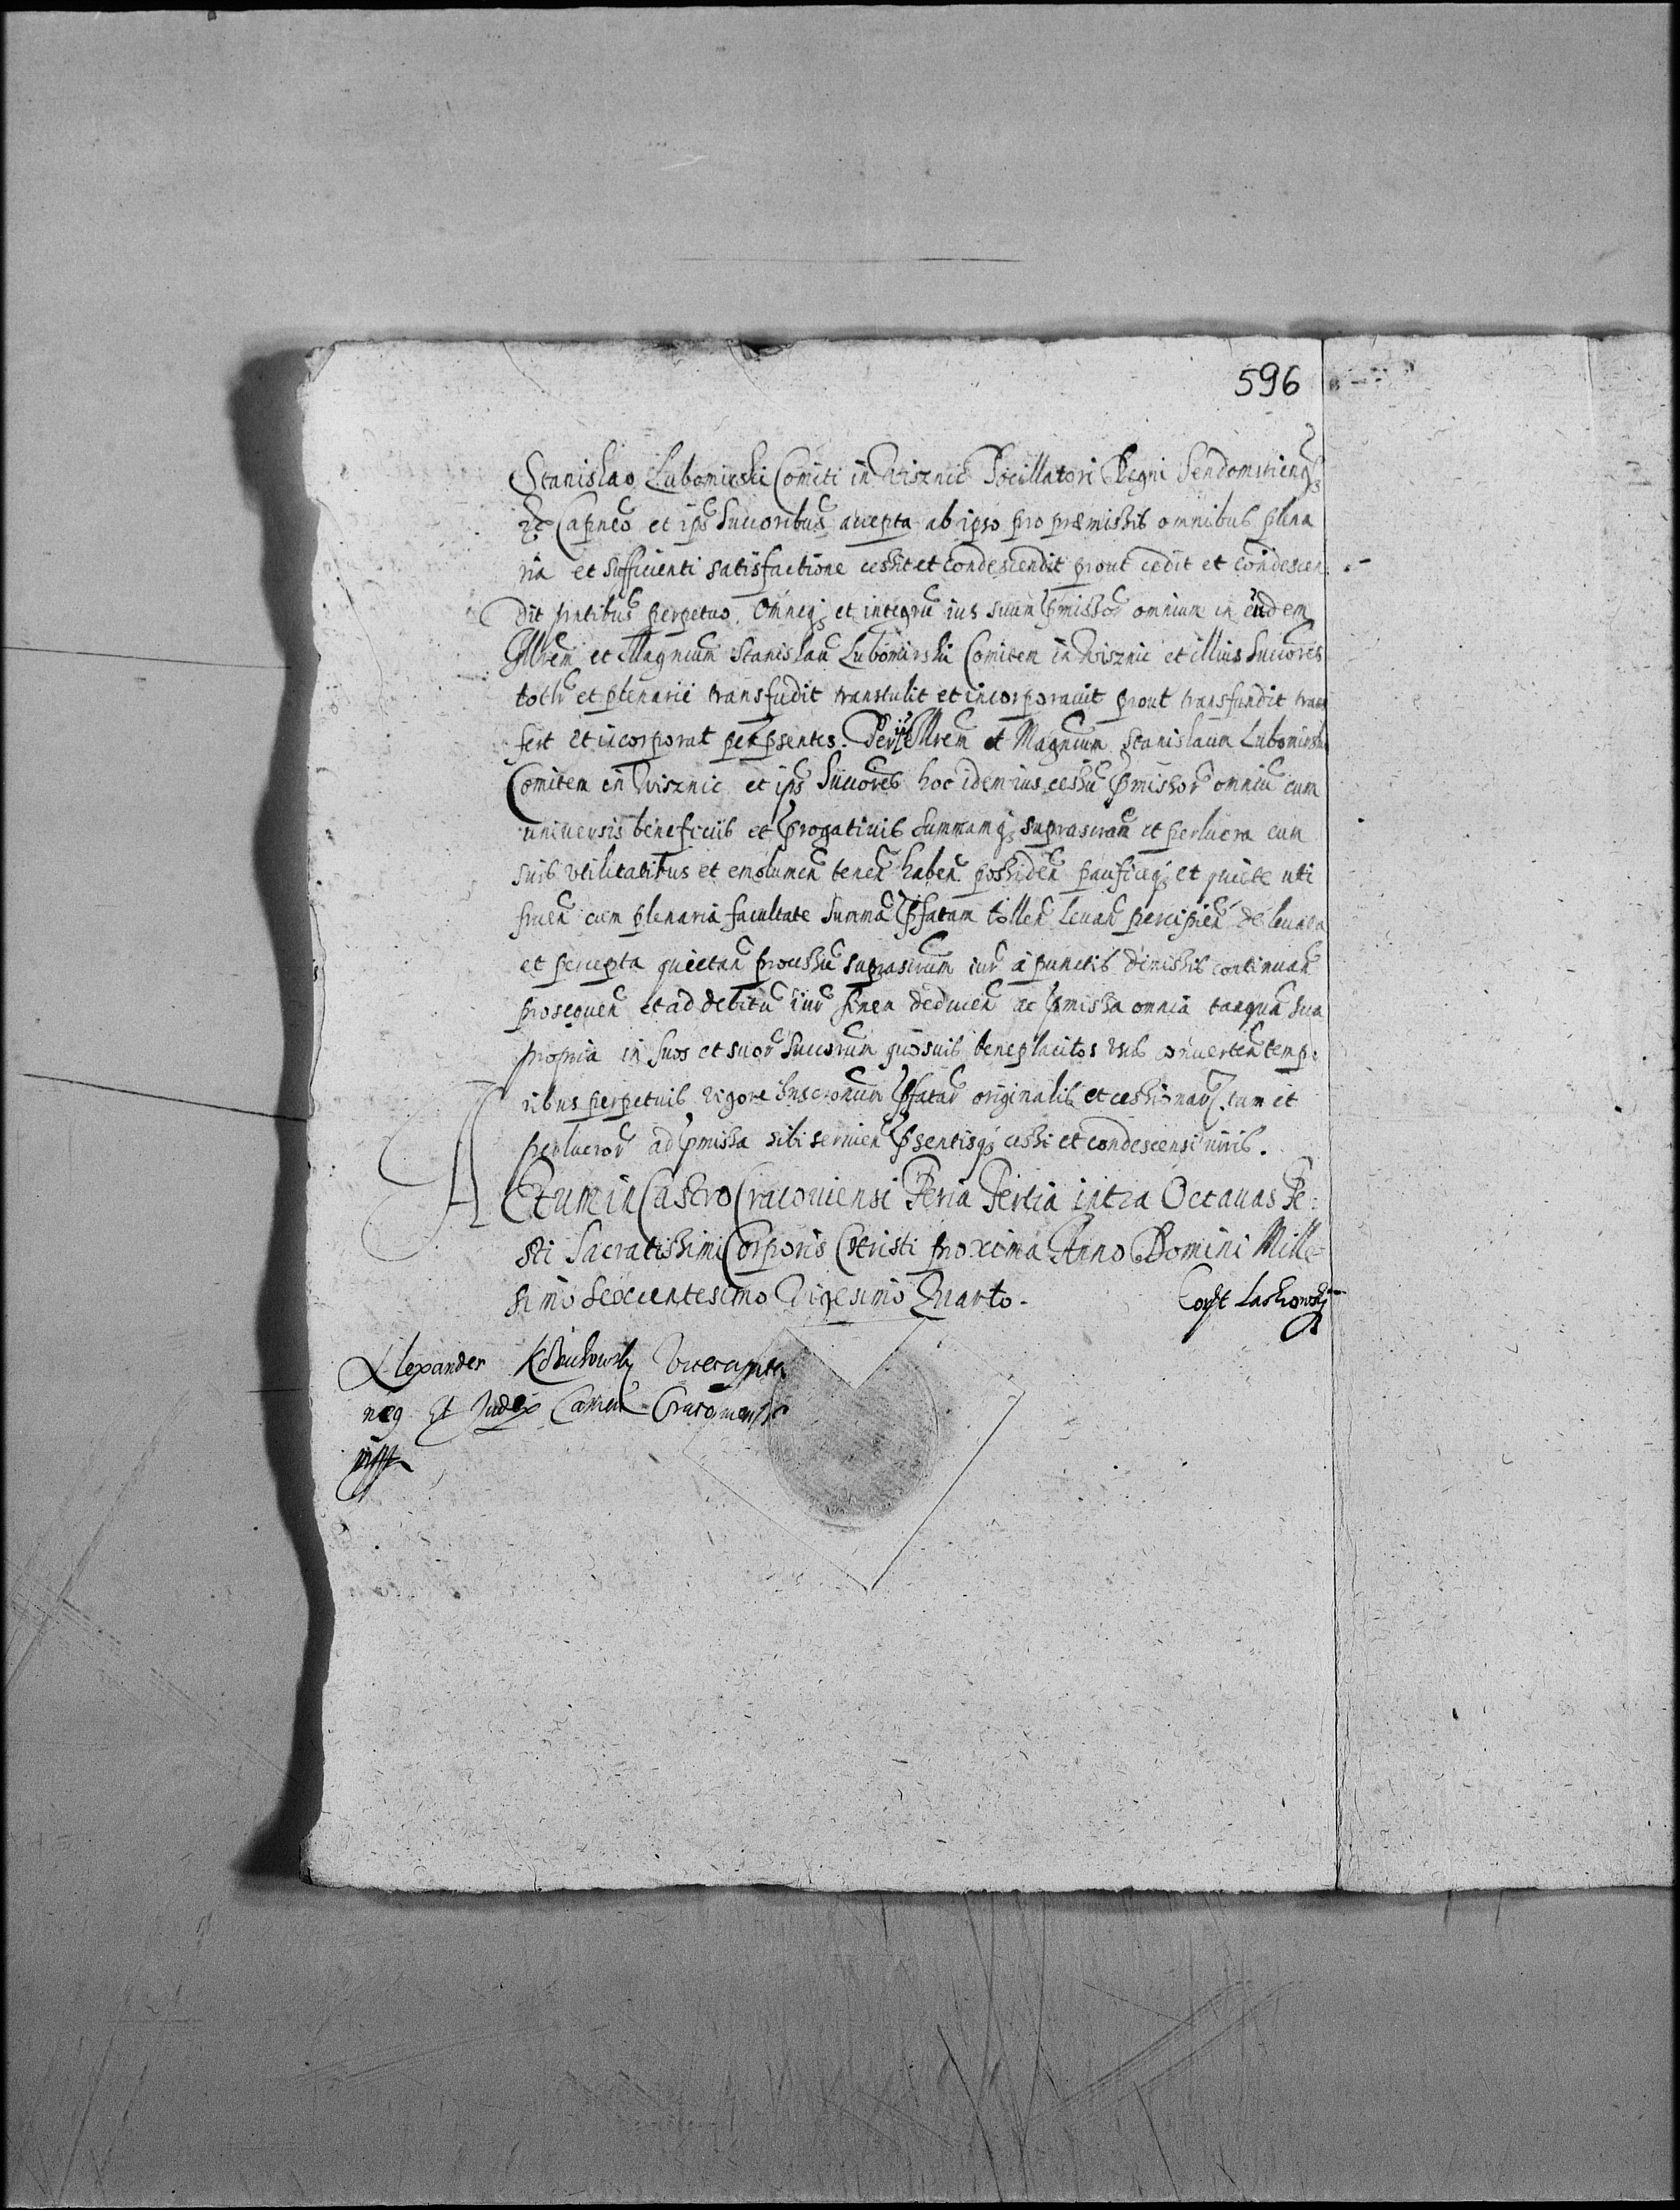 596
Stanislao Lubomirski Comiti in Wisznic Pocillatori Regni Sendomiriens
etc Capneo et ips Succoribus accepta ab ipso pro præmissis omnibus plena
ria et sufficienti satisfactione cessit et condescendit prout cedit et condescen
dit pntibus perpetuo. Omneq; et integru ius suum pmissor omnium in eudem
Illrem et Magncum Stanislau Lubomirski Comitem in Wisznic et illius Succores
totlr et plenarie transfudit transtulit et incorporauit prout transfundit trans
fert et incorporat per psentes. Illrem et Magncum Stanislaum Lubomirski
Comitem in Wisznic et ips Succores hoc idem ius cessu pmissor omniu cum
uniuersis beneficiis et progatiuis summamq; suprascram et perlucra cum
suis vtilitatibus et emolumen tenen haben possiden pacificeq; et quiete uti
fruen cum plenaria facultate summa pfatam tollen leuan percipien de leuata
et percepta quietan processu suprascrum iur a punctis dimissis continuan
prosequen et ad debitu iur finem deducen ac pmissa omnia tanqua sua
propria in suos et suor Succorum quosuis beneplacitos usus conuerten temp:
ribus perpetuis vigore Inscronum pfatar originalis et cessionar. tum et
perlucror ad pmissa sibi seruien psentisq; cessi et condescensi iuris.
Actum in Castro Cracouiensi Feria Tertia intra Octauas Fe:
sti Sacratissimi Corporis Christi proxima Anno Domini Mille
simo Sexcentesimo Vigesimo Quarto.
Laskowskj
Alexander Vicecapita
neg Et Judex Cracouiensis